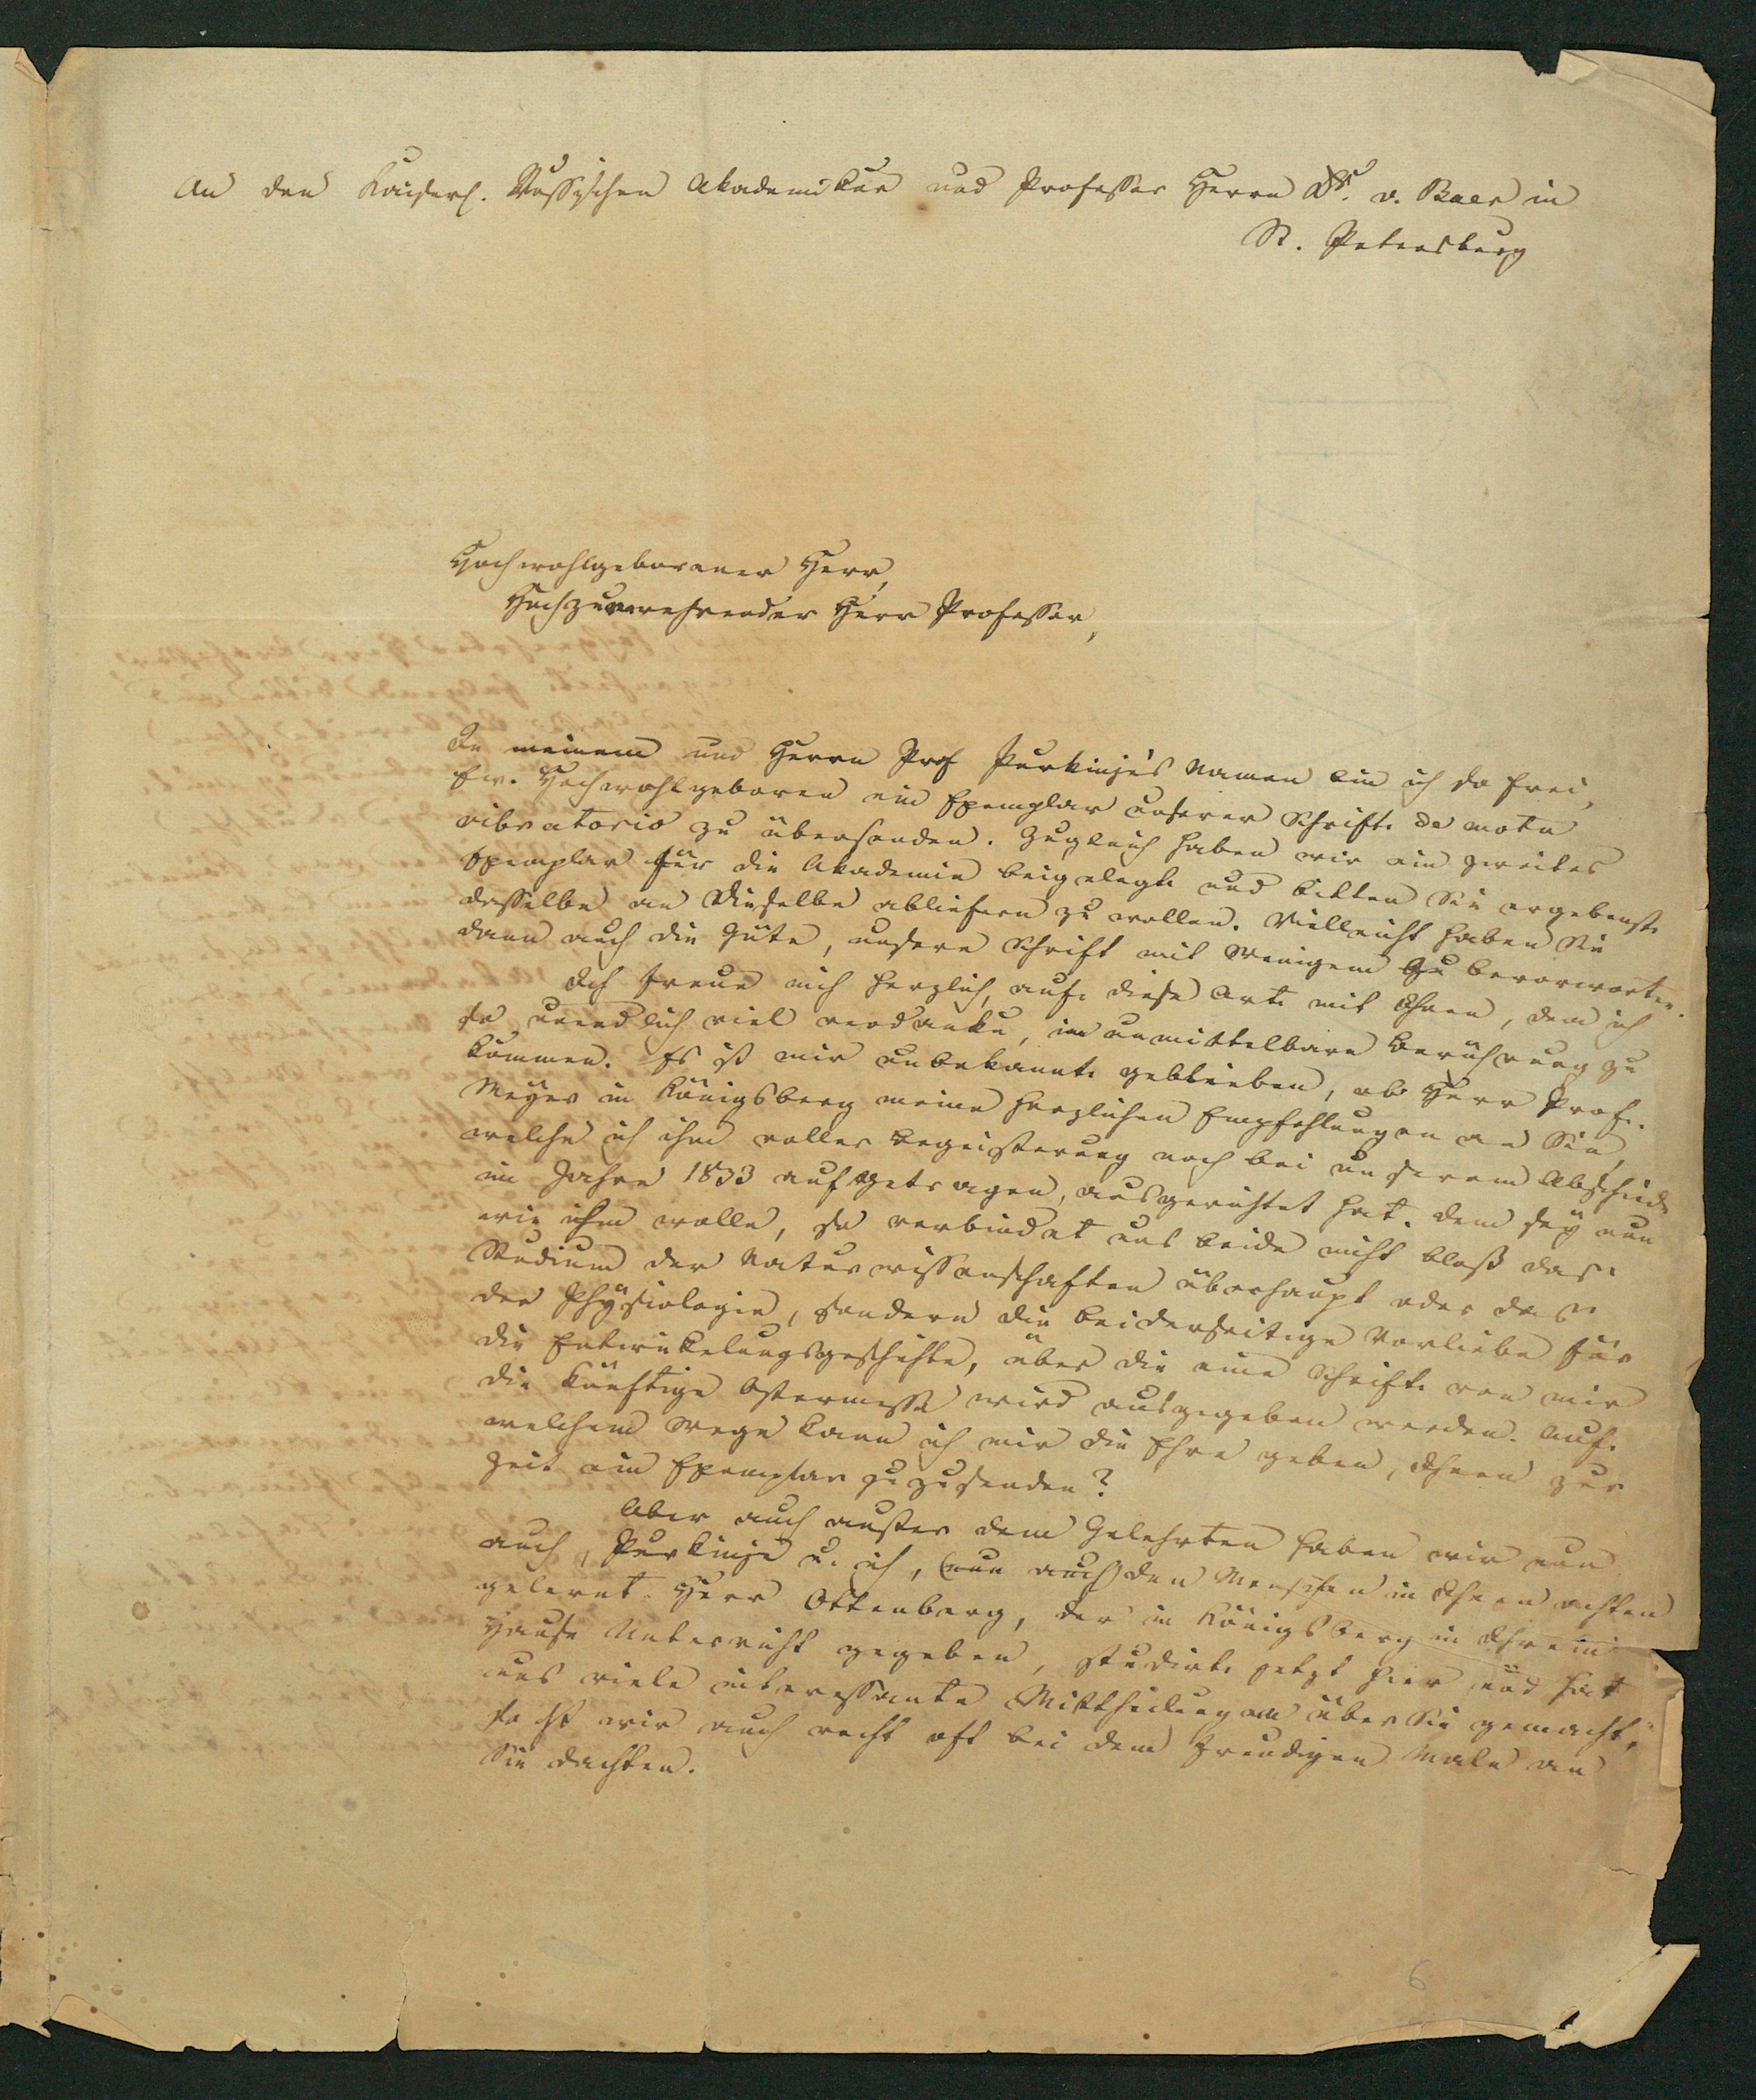 An den Kaiserl. Russischen Akademiker und Professor Herrn Dr. v. Baer in
St. Petersburg
Hochwohlgeborener Herr,
Hochzuverehrender Herr Professor,
In meinem und Herrn Prof Purkinje's Namen bin ich so frei,
Ew. Hochwohlgeboren ein Exemplar unserer Schrift de motu
vibratorio zu übersenden. Zugleich haben wir ein zweites
Exemplar für die Akademie beigelegt und bitten Sie ergebenst
dasselbe an Dieselbe abliefern zu wollen. Vielleicht haben Sie
dann auch die Güte, unsere Schrift mit Wenigem zu bevorworten.
Ich freue mich herzlich, auf diese Art mit Ihnen, dem ich
so unendlich viel verdanke, in unmittelbare Berührung zu
kommen. Es ist mir unbekannt geblieben, ob Herr Prof.
Meyer in Königsberg meine herzlichen Empfehlungen an Sie,
welche ich ihm voller Begeisterung noch bei unserem Abschiede
im Jahre 1833 aufgetragen, ausgerichtet hat. Dem sey nun
wie ihm wolle, so verbindet uns beide nicht bloß das
Studium der Naturwissenschaften überhaupt oder das
der Physiologie, sondern die beiderseitige Vorliebe für
die Entwickelungsgeschichte, über die eine Schrift von mir
die künftige Ostermesse wird ausgegeben werden. Auf
welchem Wege kann ich mir die Ehre geben, Ihnen zur
Zeit ein Exemplar zuzusenden?
Aber auch außer dem Gelehrten haben wir nun
auch, Purkinje u. ich, (nun auch) den Menschen in Ihnen achten
gelernt. Herr Ottenberg, der in Königsberg in Ihrem
Hause Unterricht gegeben, studirt jetzt hier und hat
uns viele interessante Mittheilungen über Sie gemacht,
so daß wir auch recht oft bei dem freudigen Male an
Sie dachten.
6